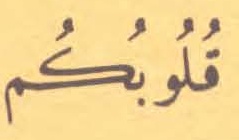 قُلُوبُكُم